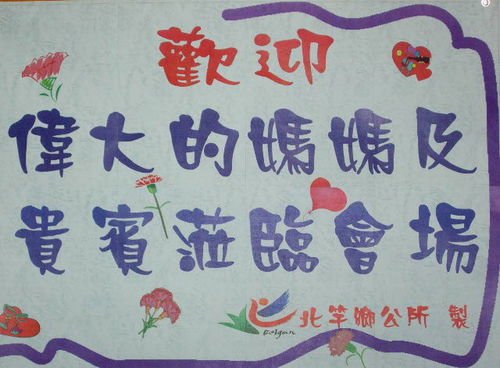 歡迎
偉大的媽媽及
貴賓蒞臨會場
北竿鄉公所 製